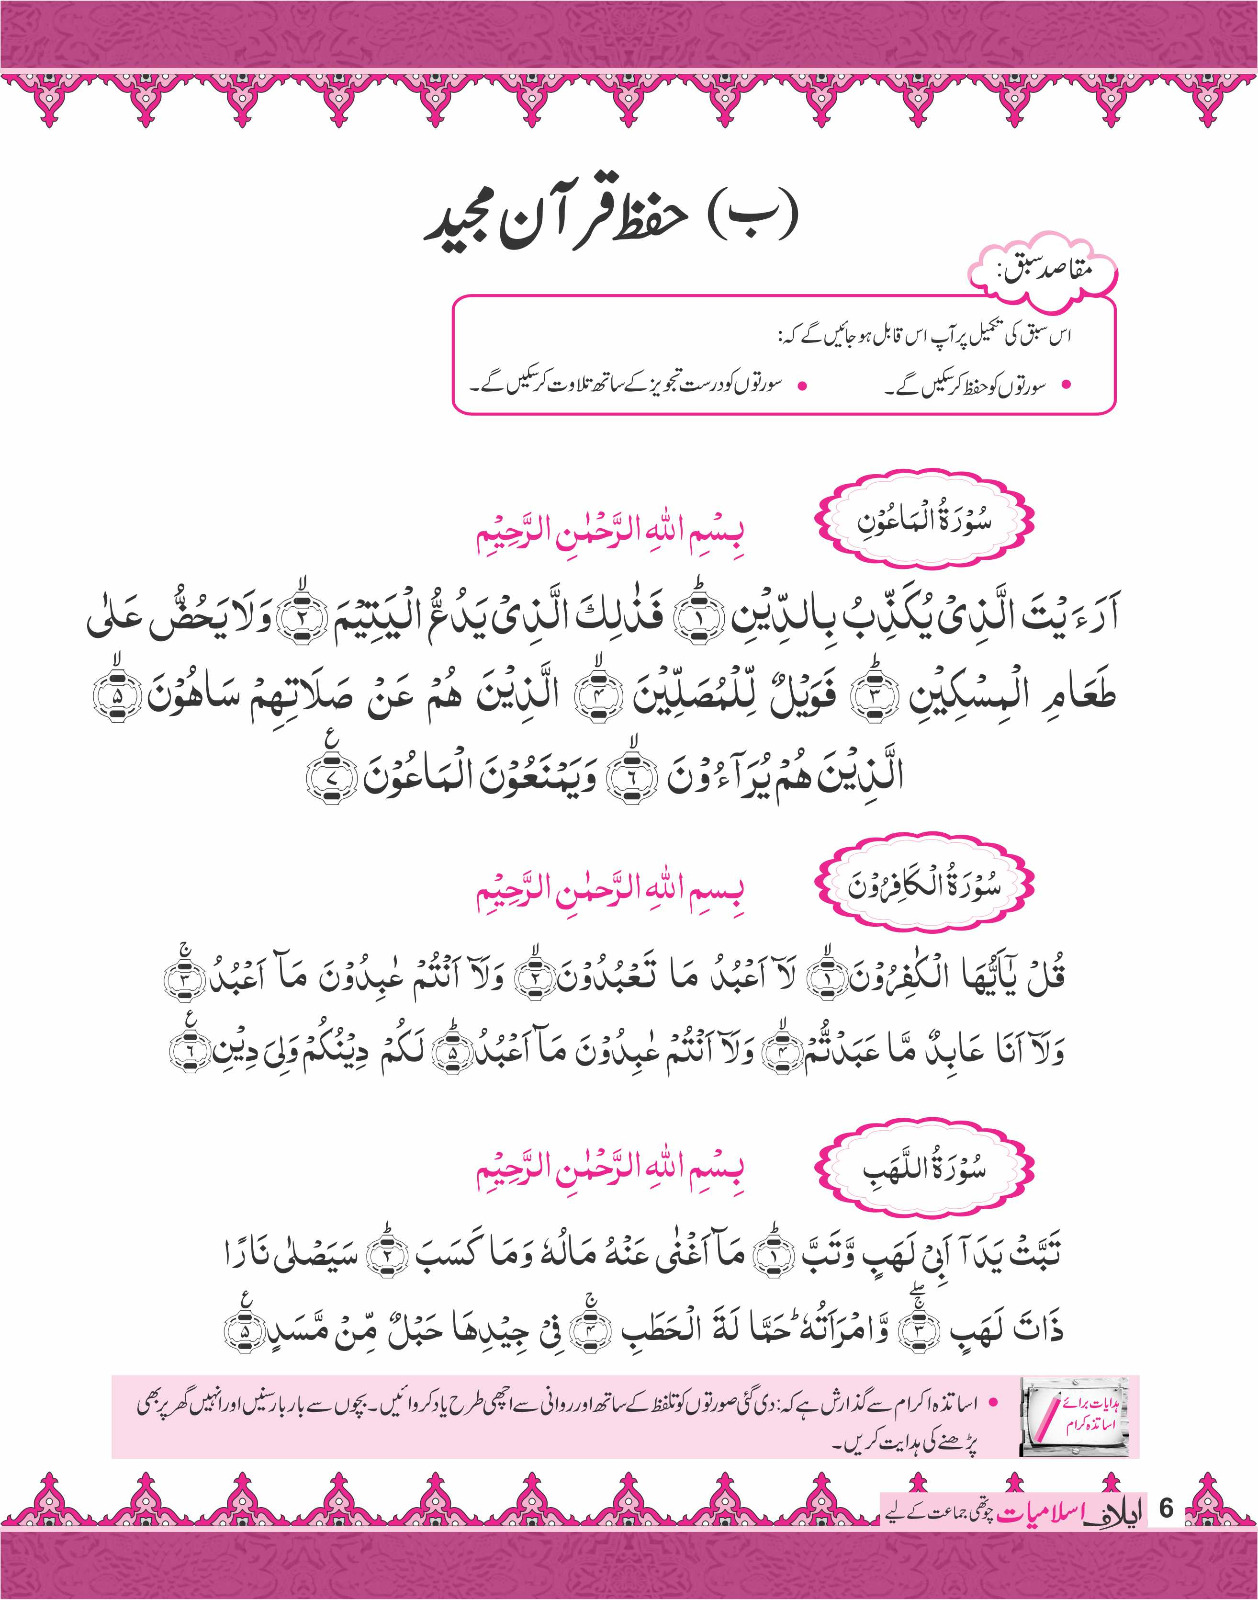 (ب) حفظ قرآن مجید
مقاصد سبق:
اس سبق کی تکمیل پر آپ اس قابل ہو جائیں گے کہ:
• سورتوں کو حفظ کر سکیں گے۔ • سورتوں کو درست تجویز کے ساتھ تلاوت کر سکیں گے۔
سُوْرَةُ الْمَاعُوْنِ
بِسْمِ اللهِ الرَّحْمٰنِ الرَّحِيْمِ
اَرَءَيْتَ الَّذِىْ يُكَذِّبُ بِالدِّيْنِ ؕ۝۱ فَذٰلِكَ الَّذِىْ يَدُعُّ الْيَتِيْمَ ۙ۝۲ وَلَا يَحُضُّ عَلٰى
طَعَامِ الْمِسْكِيْنِ ؕ۝۳ فَوَيْلٌ لِّلْمُصَلِّيْنَ ۙ۝۴ الَّذِيْنَ هُمْ عَنْ صَلَاتِهِمْ سَاهُوْنَ ۙ۝۵
الَّذِيْنَ هُمْ يُرَآءُوْنَ ۙ۝۶ وَيَمْنَعُوْنَ الْمَاعُوْنَ ۝۷ ع
سُوْرَةُ الْكَافِرُوْنَ
بِسمِ اللهِ الرَّحمٰنِ الرَّحِيْمِ
قُلْ يٰٓاَيُّهَا الْكٰفِرُوْنَ ۙ۝۱ لَآ اَعْبُدُ مَا تَعْبُدُوْنَ ۙ۝۲ وَلَآ اَنْتُمْ عٰبِدُوْنَ مَآ اَعْبُدُ ۚ۝۳
وَلَآ اَنَا عَابِدٌ مَّا عَبَدْتُّمْ ۙ۝۴ وَلَآ اَنْتُمْ عٰبِدُوْنَ مَآ اَعْبُدُ ؕ۝۵ لَكُمْ دِيْنُكُمْ وَلِىَ دِيْنِ ۝۶ ع
سُوْرَةُ اللَّهَبِ
بِسْمِ اللهِ الرَّحْمٰنِ الرَّحِيْمِ
تَبَّتْ يَدَآ اَبِىْ لَهَبٍ وَّتَبَّ ؕ۝۱ مَآ اَغْنٰى عَنْهُ مَالُهٗ وَمَا كَسَبَ ؕ۝۲ سَيَصْلٰى نَارًا
ذَاتَ لَهَبٍ ۖۚ۝۳ وَّامْرَاَتُهٗ ؕ حَمَّا لَةَ الْحَطَبِ ۚ۝۴ فِىْ جِيْدِهَا حَبْلٌ مِّنْ مَّسَدٍ ۝۵ ع
ہدایات برائے
اساتذہ کرام
• اساتذہ اکرام سے گذارش ہے کہ: دی گئی صورتوں کو تلفظ کے ساتھ اور روانی سے اچھی طرح یاد کروائیں۔ بچوں سے بار بار سنیں اور انہیں گھر پر بھی
پڑھنے کی ہدایت کریں۔
6 ایلاف اسلامیات چوتھی جماعت کے لیے